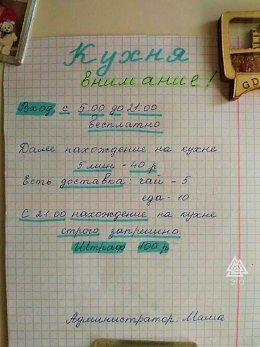 Кухня
внимание!
Вход с 5:00 до 21:00
бесплатно
Далее нахождение на кухне
5 мин - 40 р
Есть доставка: чай - 5
еда - 10
С 21.00 нахождение на кухне
строго заприщено.
Штраф 100 р
Администратор: Мама